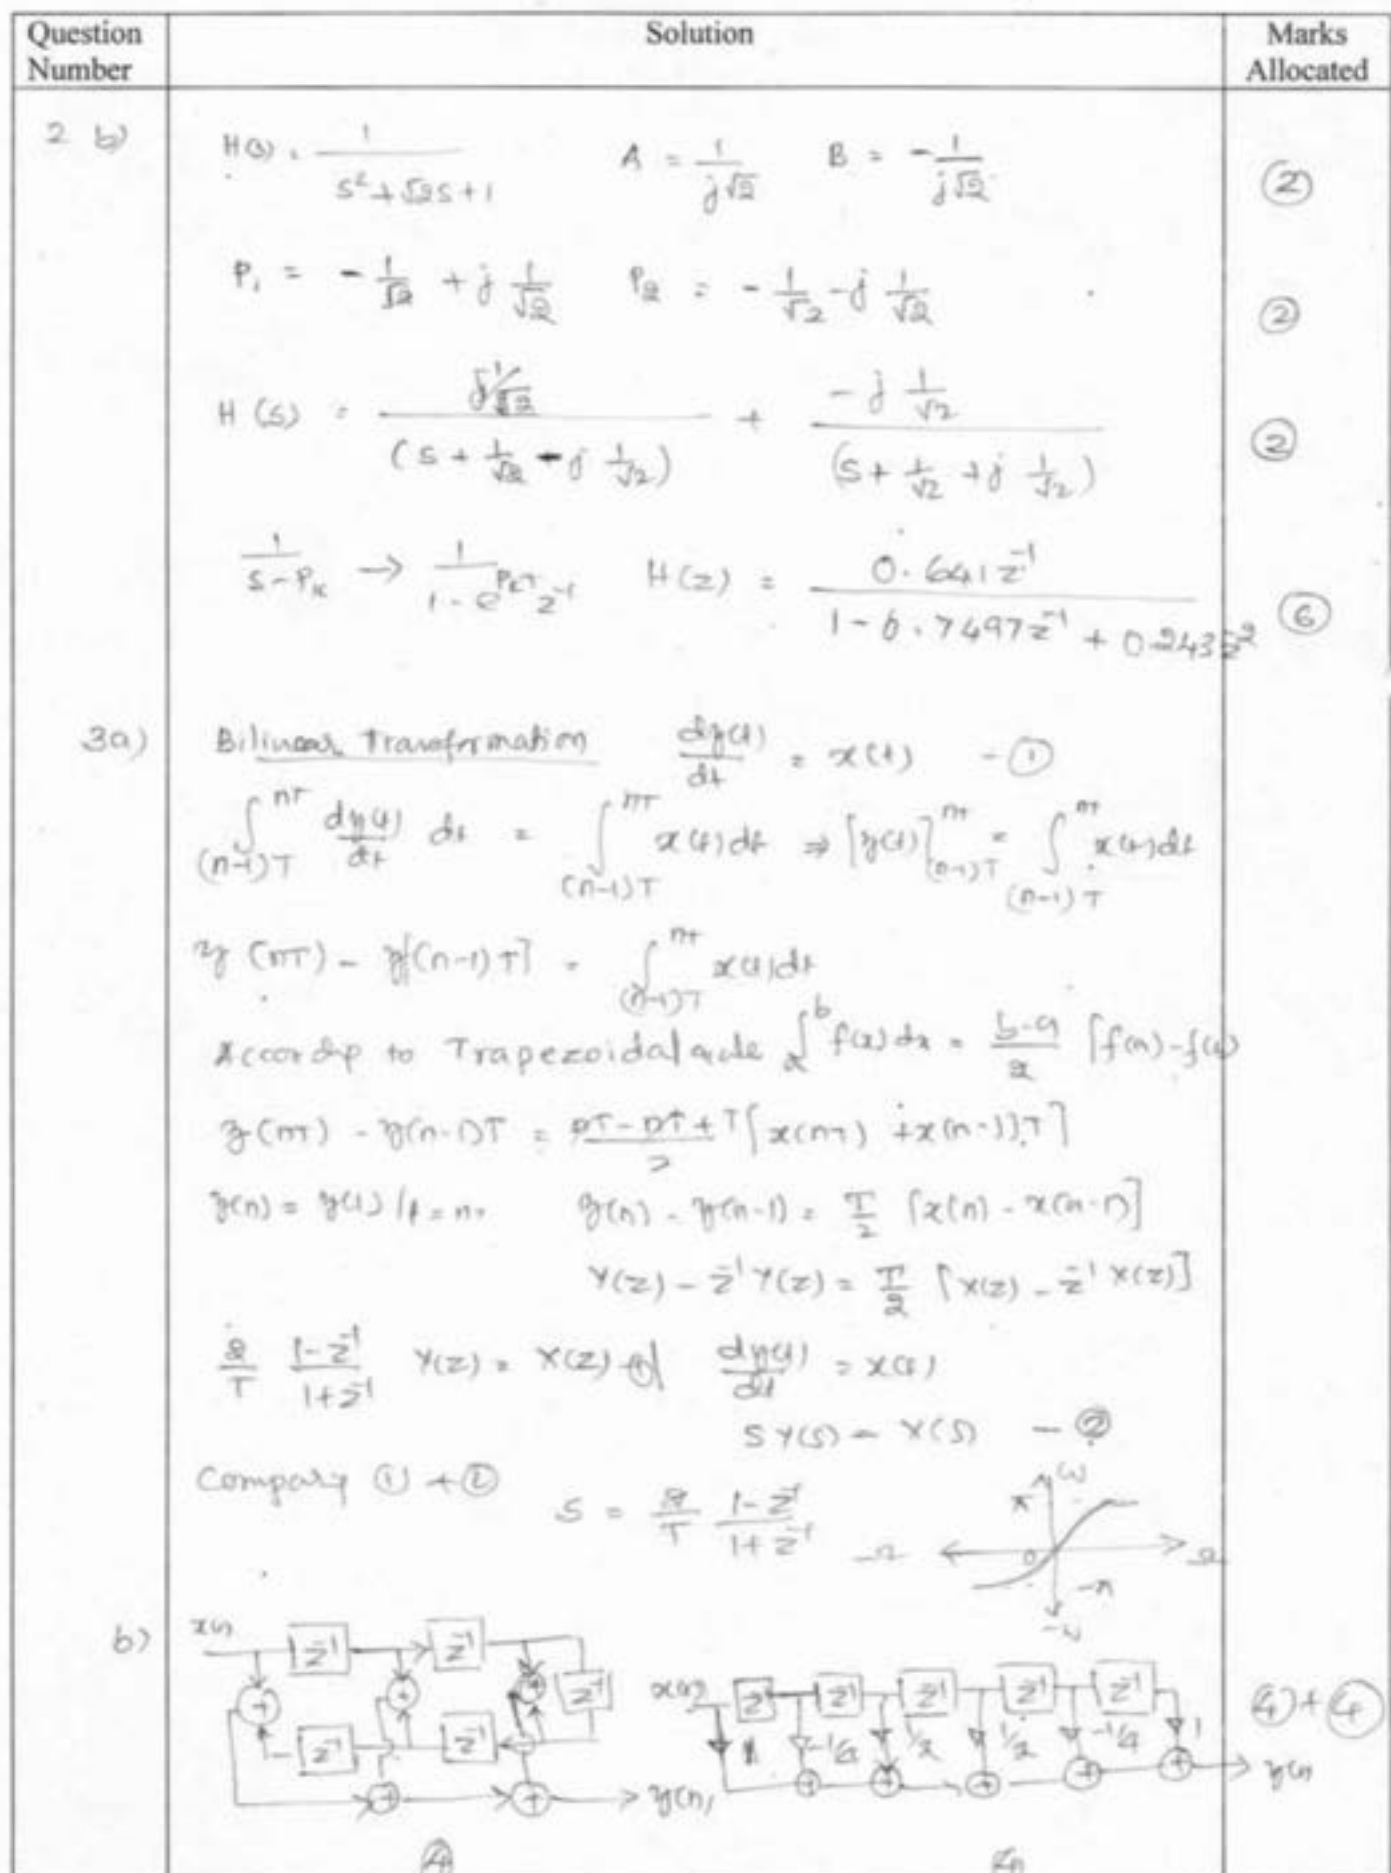 Question Number | Solution | Marks Allocated
2 b) H(s) = 1/(s² + √2s + 1) A = 1/(j√2) B = -1/(j√2) (2)
P₁ = -1/√2 + j 1/√2 P₂ = -1/√2 - j 1/√2 (2)
H(s) = (j 1/√2)/(s + 1/√2 - j 1/√2) + (-j 1/√2)/(s + 1/√2 + j 1/√2) (2)
1/(s - Pₖ) → 1/(1 - e^(PₖT) z⁻¹) H(z) = 0.641z⁻¹/(1 - 0.7497z⁻¹ + 0.243z⁻²) (6)
3a) Bilinear Transformation dy(t)/dt = x(t) - ①
∫_{(n-1)T}^{nT} dy(t)/dt dt = ∫_{(n-1)T}^{nT} x(t)dt ⇒ [y(t)]_{(n-1)T}^{nT} = ∫_{(n-1)T}^{nT} x(t)dt
y(nT) - y[(n-1)T] = ∫_{(n-1)T}^{nT} x(t)dt
Accordg to Trapezoidal rule ∫_a^b f(x)dx = (b-a)/2 [f(a) - f(b)
y(nT) - y(n-1)T = (nT - nT + T)/2 [x(nT) + x(n-1)T]
y(n) = y(t)/t=nT y(n) - y(n-1) = T/2 [x(n) - x(n-1)]
Y(z) - z⁻¹Y(z) = T/2 [X(z) - z⁻¹X(z)]
2/T (1 - z⁻¹)/(1 + z⁻¹) Y(z) = X(z) - ① dy(t)/dt = x(t)
SY(s) = X(s) - ②
Comparg ① + ②
S = 2/T (1 - z⁻¹)/(1 + z⁻¹)
ω π -Ω 0 Ω -π -ω
b) x(n) z⁻¹ z⁻¹ x(n) z⁻¹ z⁻¹ z⁻¹ z⁻¹ z⁻¹
+ + + z⁻¹ (4) + (4)
z⁻¹ z⁻¹ 1 -1/4 1/2 1/2 -1/4 1
+ + y(n) + + + + + y(n)
(4)